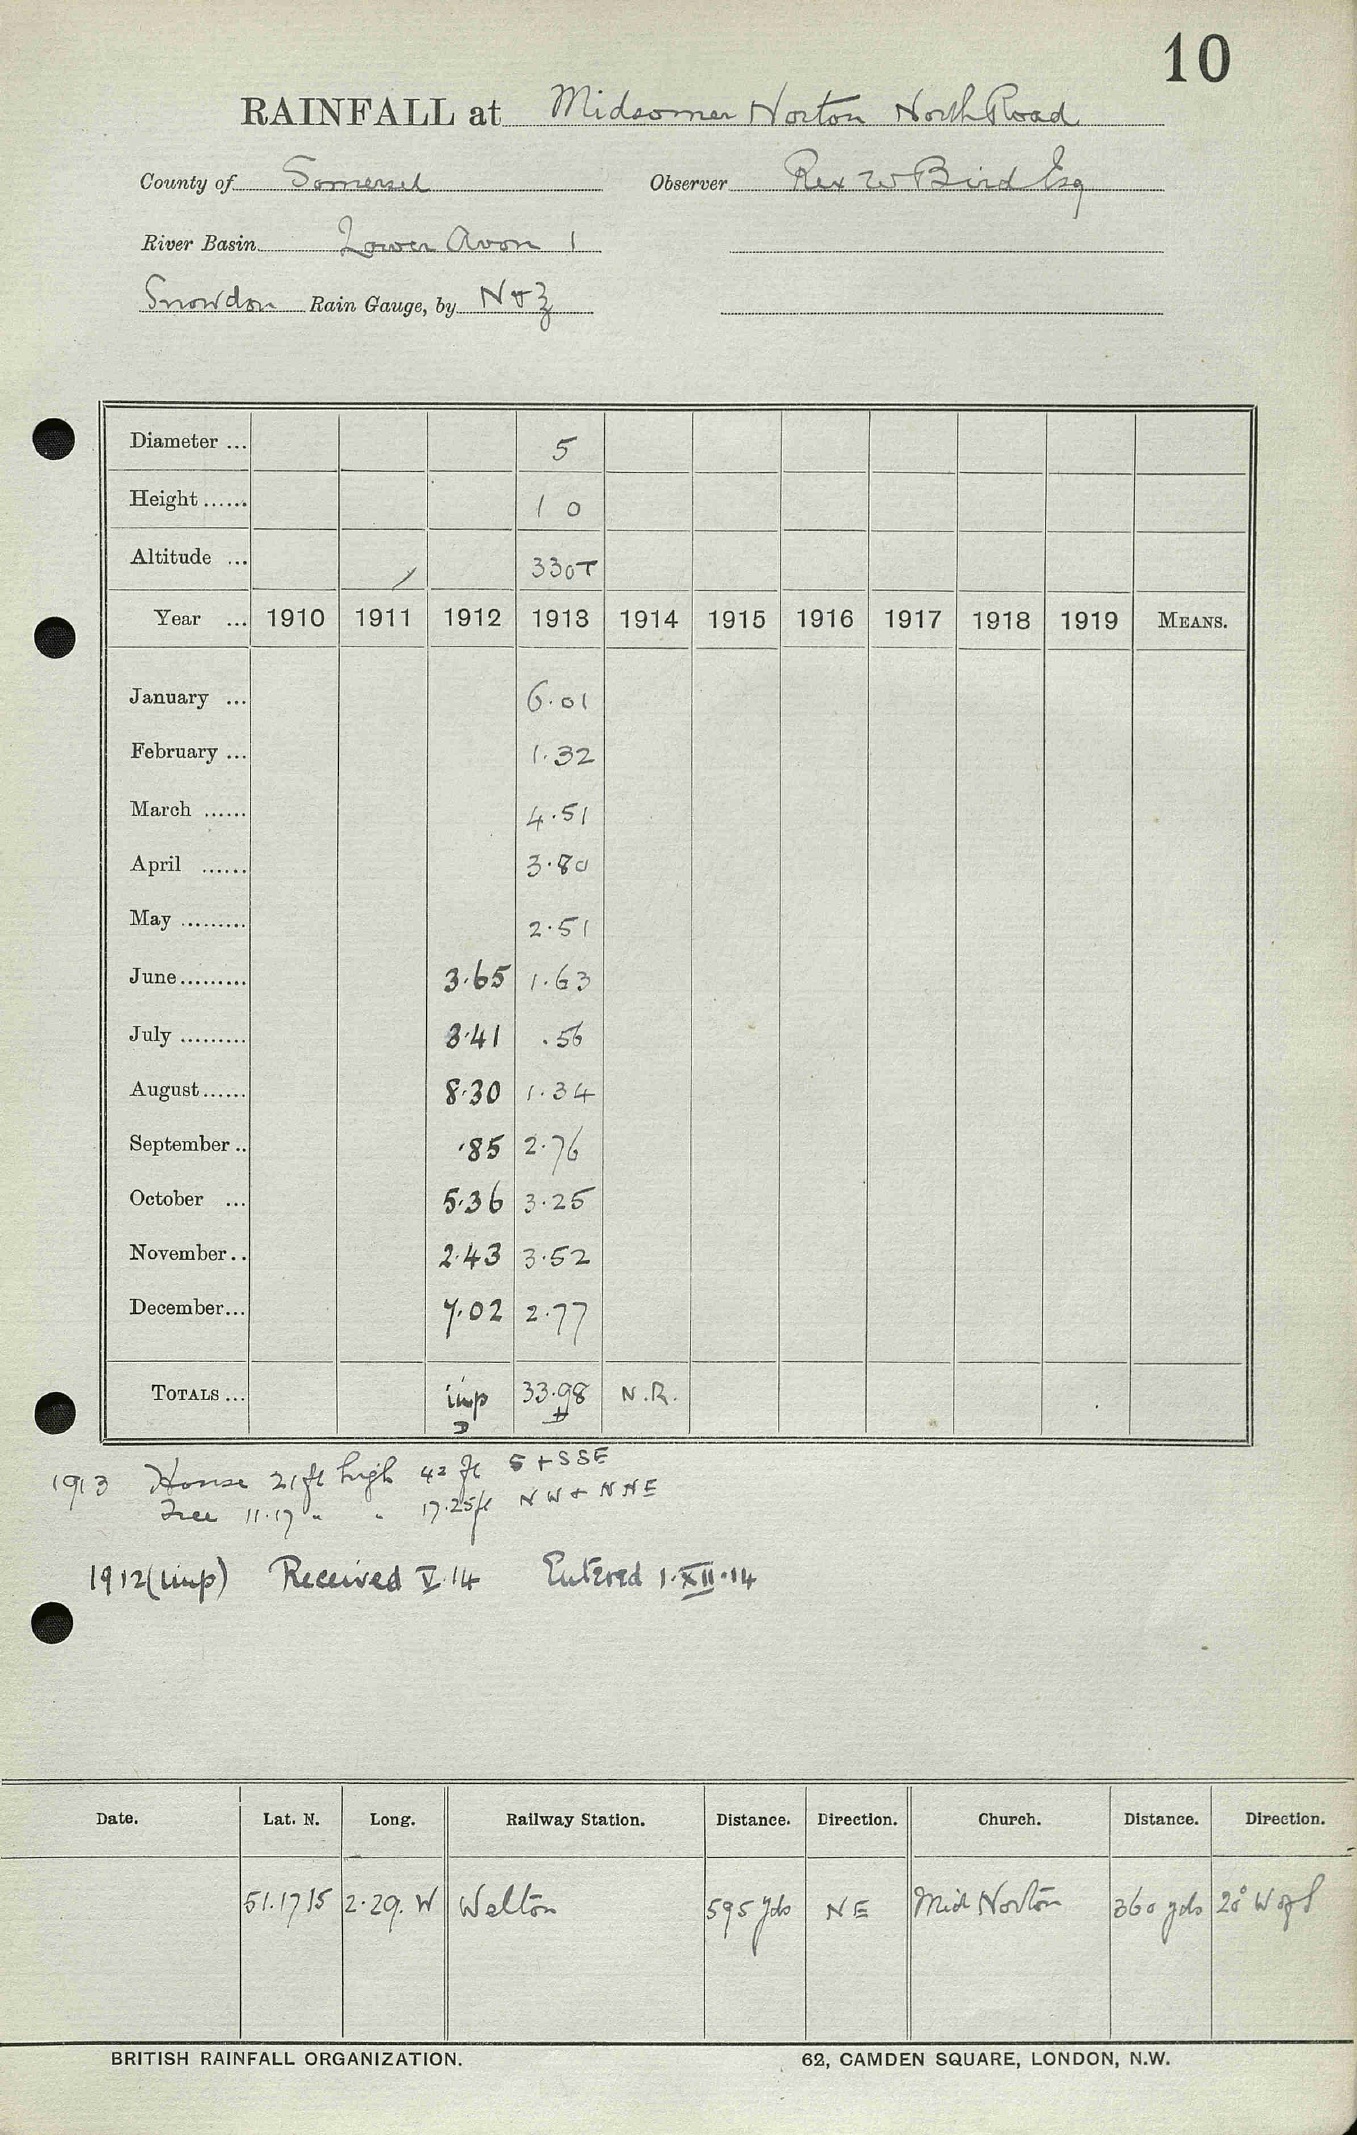 10
RAINFALL at Midsomer Norton North Road
County of Somerset Observer Rex W Bird Esq
River Basin Lower Avon 1
Snowdon Rain Gauge, by N & Z
Diameter ... 5
Height ...... 1 0
Altitude ... 330T
Year ... 1910 1911 1912 1913 1914 1915 1916 1917 1918 1919 MEANS.
January ... 6.01
February ... 1.32
March ...... 4.51
April ...... 3.80
May ......... 2.51
June ......... 3.65 1.63
July ......... 3.41 .56
August ...... 8.30 1.34
September .. .85 2.76
October ... 5.36 3.25
November .. 2.43 3.52
December ... 7.02 2.77
TOTALS ... imp 33.98 N.R.
D
1913 House 21 ft high 42 ft S + SSE
Tree 11.17 " " 17.25 ft NW & NNE
1912 (imp) Received V.14 Entered 1.XII.14
Date. Lat. N. Long. Railway Station. Distance. Direction. Church. Distance. Direction.
51.17 15 2.29. W Welton 595 yds NE Mid Norton 360 yds 20° W of S
BRITISH RAINFALL ORGANIZATION. 62, CAMDEN SQUARE, LONDON, N.W.